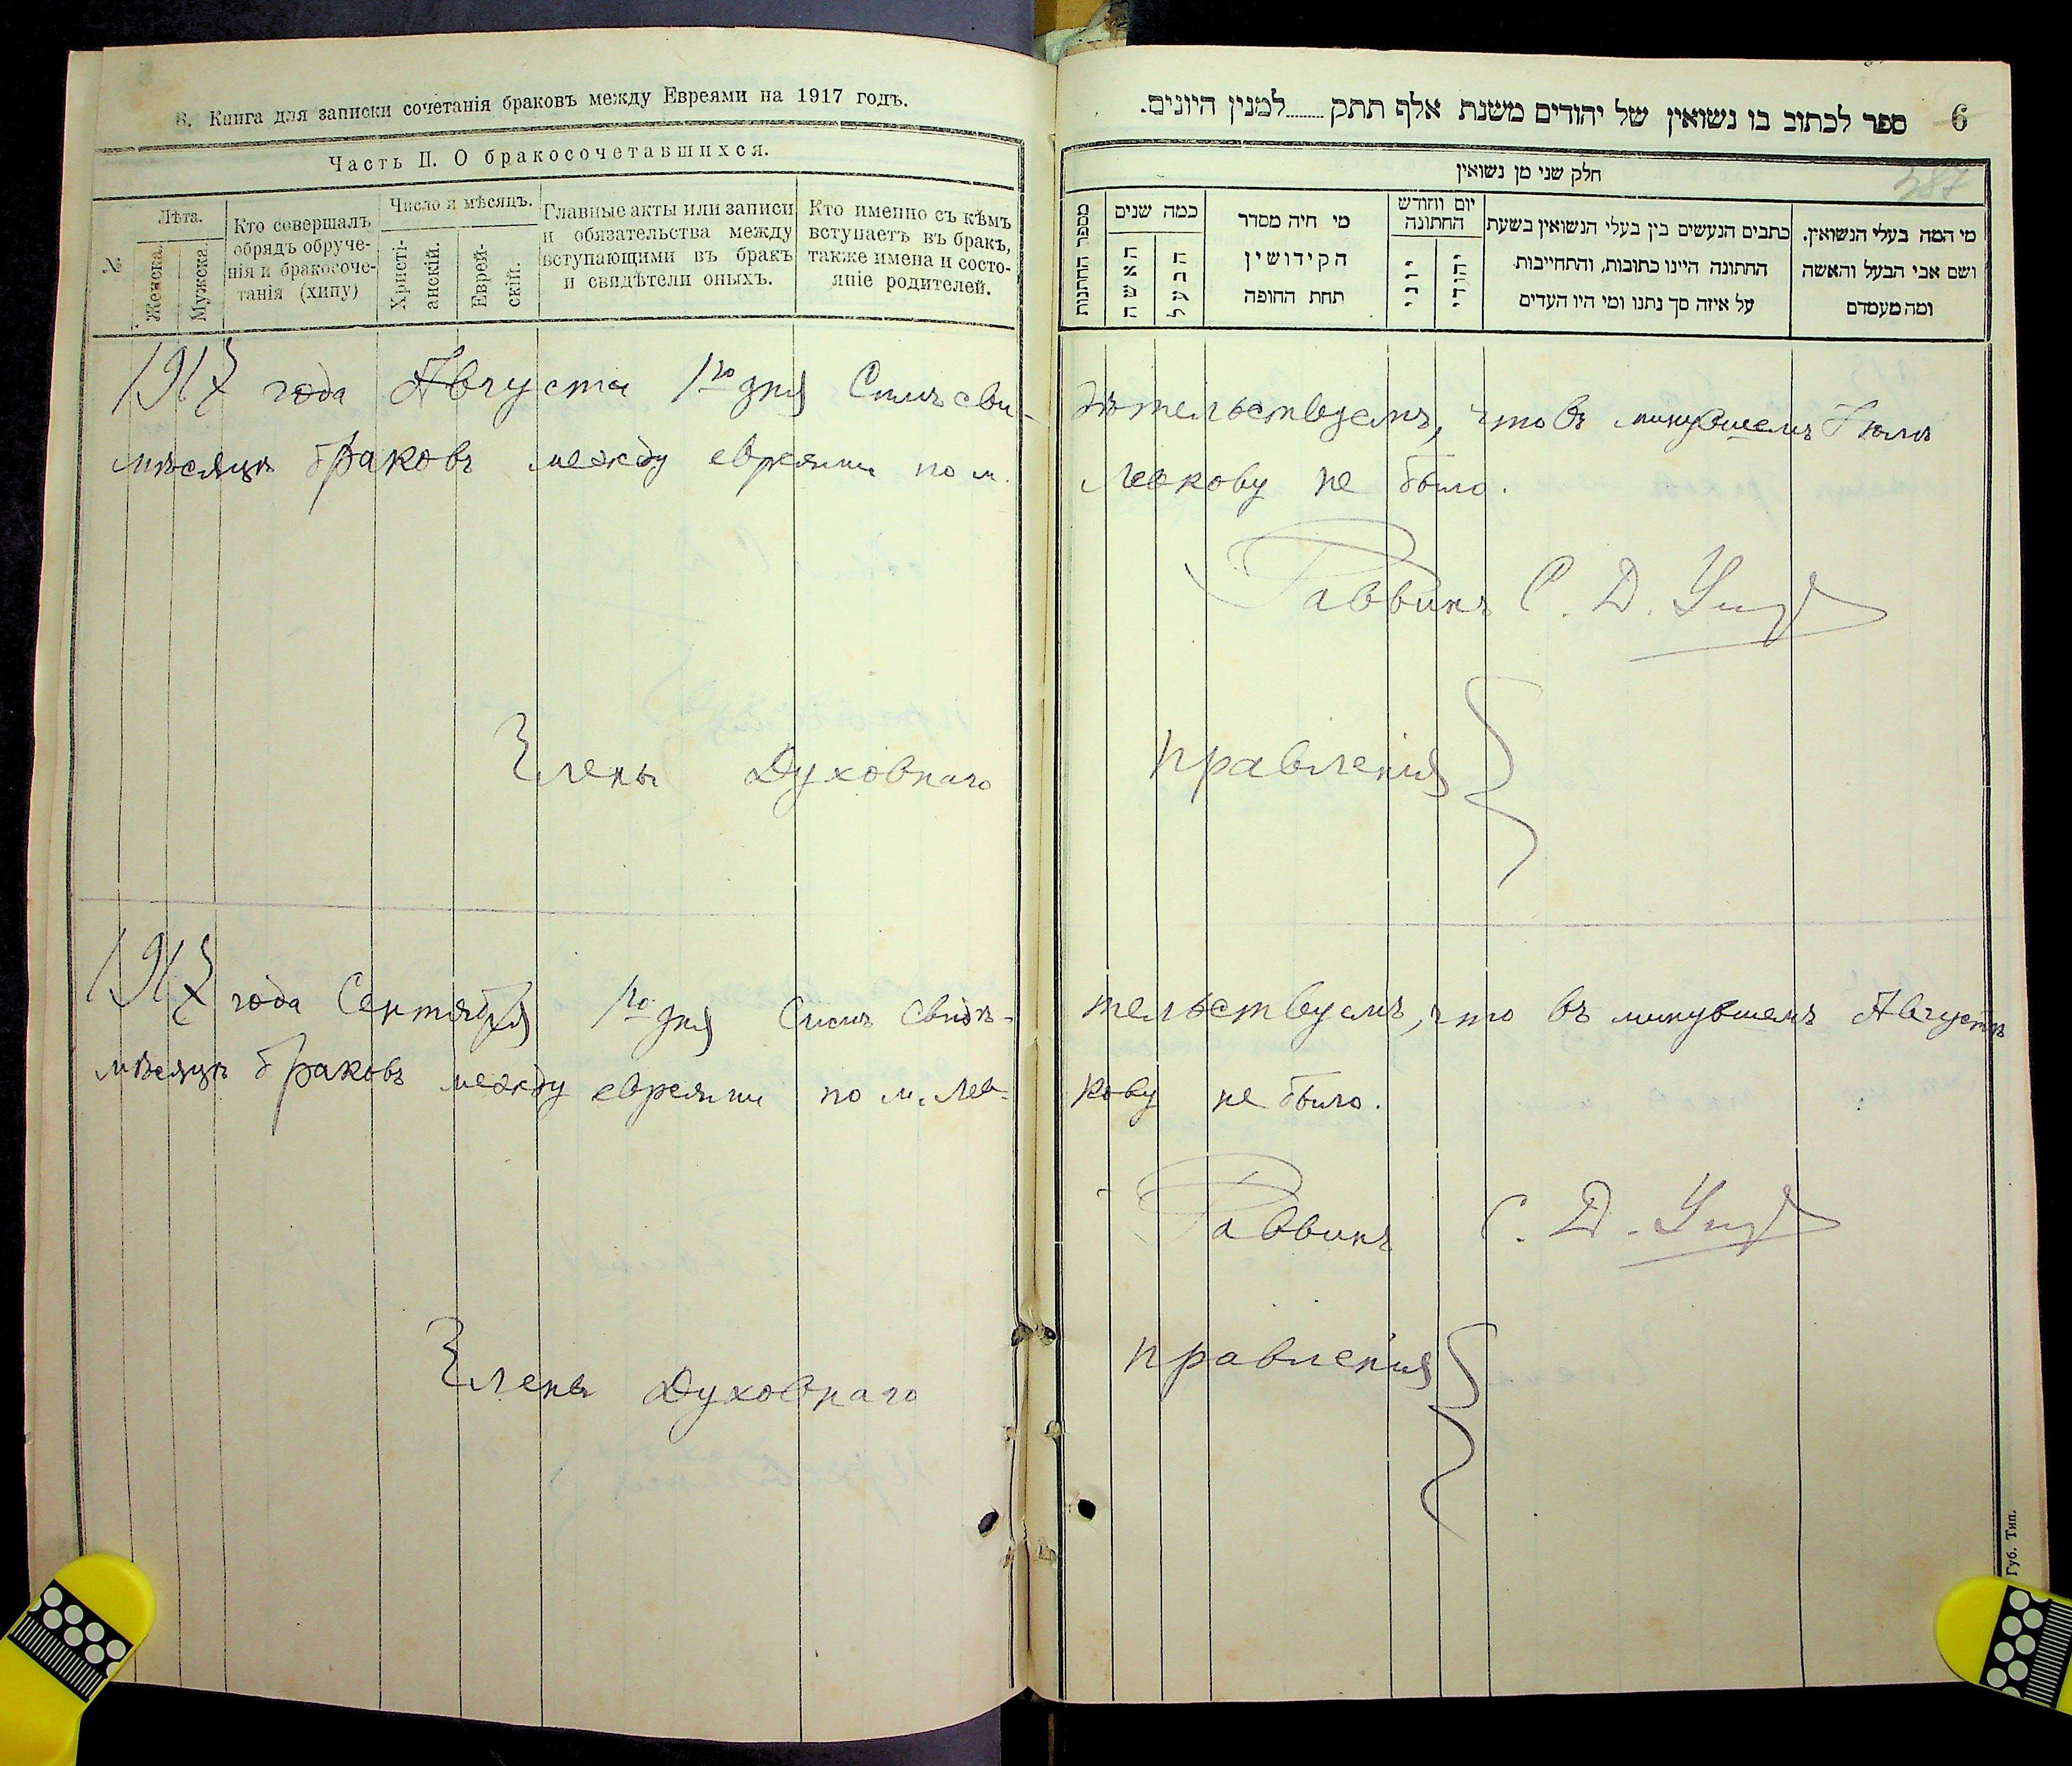 В. Книга для записки сочетанія браковъ между Евреями на 1917 годъ.
Часть II. О бракосочетавшихся.
№
Лѣта.
Женска.
Мужска.
Кто совершалъ
обрядъ обруче-
нія и бракосоче-
танія (хипу)
Число и мѣсяцъ.
Христі-
анскій.
Еврей-
скій.
Главные акты или записи
и обязательства между
вступающими въ бракъ
и свидѣтели оныхъ.
Кто именно съ кѣмъ
вступаетъ въ бракъ,
также имена и состо-
яніе родителей.
ספר לכתוב בו נשואין של יהודים משנת אלף תתק........למנין היונים.
6
387
חלק שני מן נשואין
מספר החתונות
כמה שנים
האשה
הבעל
מי היה מסדר
הקידושין
תחת החופה
יום וחודש
החתונה
יוני
יהודי
כתבים הנעשים בין בעלי הנשואין בשעת
החתונה היינו כתובות, והתחייבות
על איזה סך נתנו ומי היו העדים
מי המה בעלי הנשואין.
ושם אבי הבעל והאשה
ומה מעמדם
1917 года Августа 1го дня Симъ сви-дѣтельствуемъ, что въ минувшемъ Іюлѣ
мѣсяцѣ браковъ между евреями по м. Левкову не было.
Раввинъ С. Д.
Члены Духовнаго правленія
1917 года Сентября 1го дня Симъ свидѣ-тельствуемъ, что въ минувшемъ Августѣ
мѣсяцѣ браковъ между евреями по м. Лев-кову не было.
Раввинъ С. Д.
Члены Духовнаго правленія
Губ. Тип.